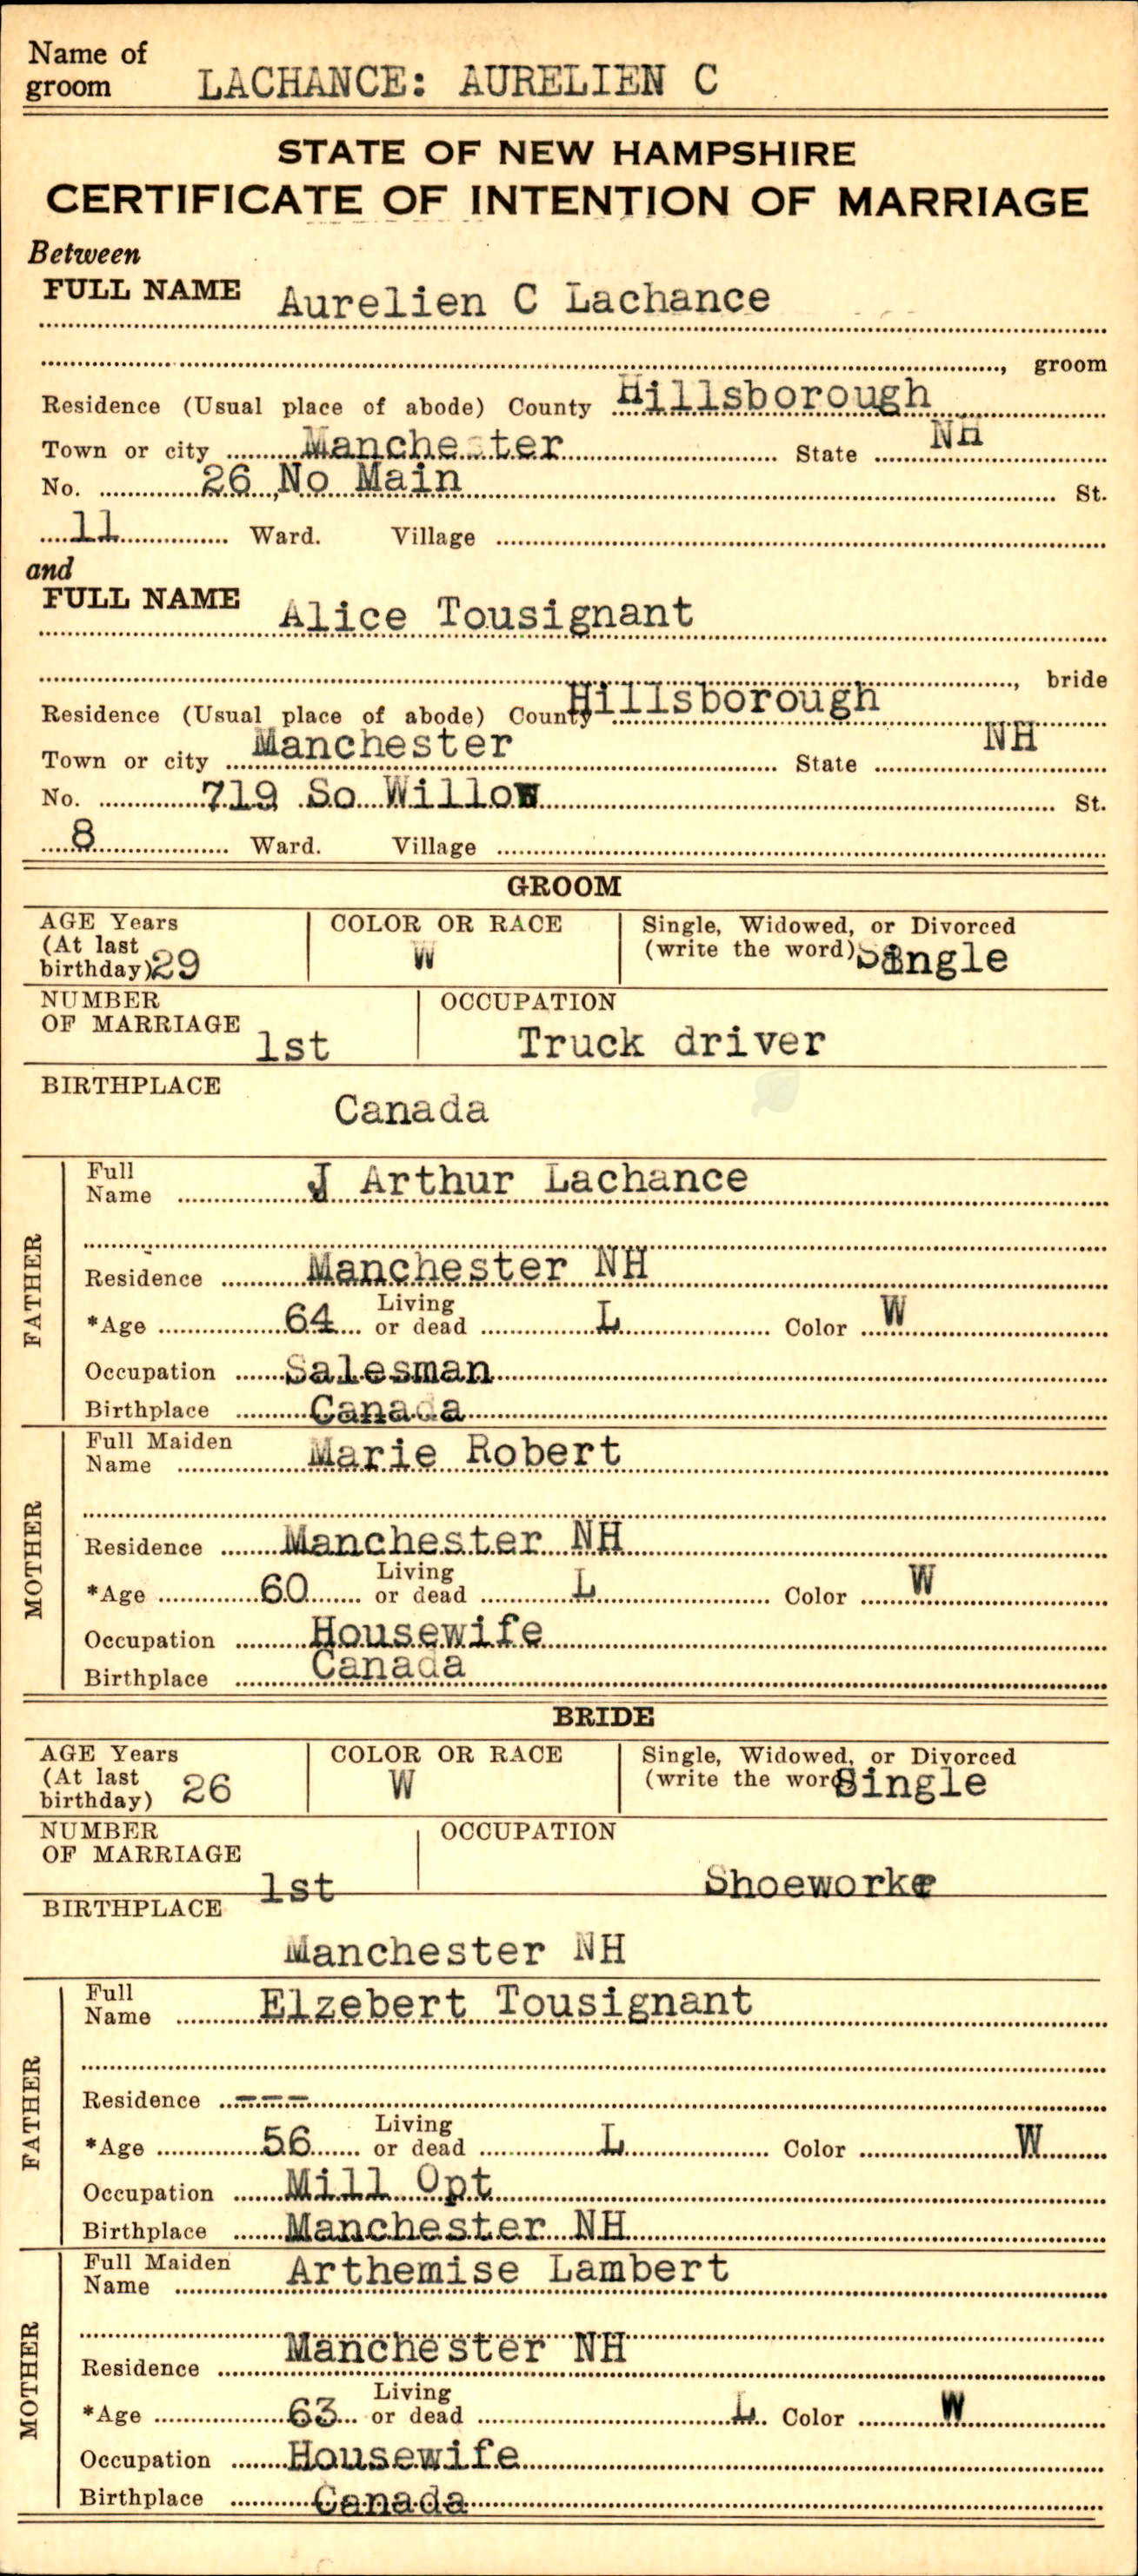 Name of
groom LACHANCE: AURELIEN C
STATE OF NEW HAMPSHIRE
CERTIFICATE OF INTENTION OF MARRIAGE
Between
FULL NAME Aurelien C Lachance
, groom
Residence (Usual place of abode) County Hillsborough
Town or city Manchester State NH
No. 26 No Main St.
11 Ward. Village
and
FULL NAME Alice Tousignant
, bride
Residence (Usual place of abode) County Hillsborough
Town or city Manchester State NH
No. 719 So Willow St.
8 Ward. Village
GROOM
AGE Years COLOR OR RACE Single, Widowed, or Divorced
(At last W (write the word) Single
birthday) 29
NUMBER OCCUPATION
OF MARRIAGE 1st Truck driver
BIRTHPLACE
Canada
FATHER
Full
Name J Arthur Lachance
Residence Manchester NH
*Age 64 Living or dead L Color W
Occupation Salesman
Birthplace Canada
MOTHER
Full Maiden
Name Marie Robert
Residence Manchester NH
*Age 60 Living or dead L Color W
Occupation Housewife
Birthplace Canada
BRIDE
AGE Years COLOR OR RACE Single, Widowed, or Divorced
(At last W (write the word) Single
birthday) 26
NUMBER OCCUPATION
OF MARRIAGE
1st Shoeworker
BIRTHPLACE
Manchester NH
FATHER
Full
Name Elzebert Tousignant
Residence ---
*Age 56 Living or dead L Color W
Occupation Mill Opt
Birthplace Manchester NH
MOTHER
Full Maiden
Name Arthemise Lambert
Residence Manchester NH
*Age 63 Living or dead L Color W
Occupation Housewife
Birthplace Canada